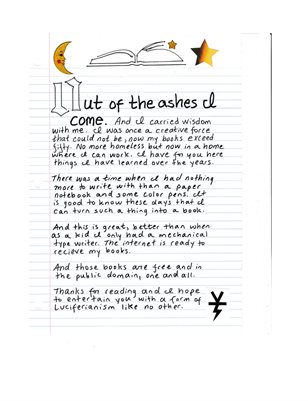 Out of the ashes I
come. And I carried wisdom
with me. I was once a creative force
that could not be, now my books exceed
fifty. No more homeless but now in a home
where I can work. I have for you here
things I have learned over the years.
There was a time when I had nothing
more to write with than a paper
notebook and some color pens. It
is good to know these days that I
can turn such a thing into a book.
And this is great, better than when
as a kid I only had a mechanical
type writer. The internet is ready to
recieve my books.
And those books are free and in
the public domain, one and all.
Thanks for reading and I hope
to entertain you with a form of
Luciferianism like no other.